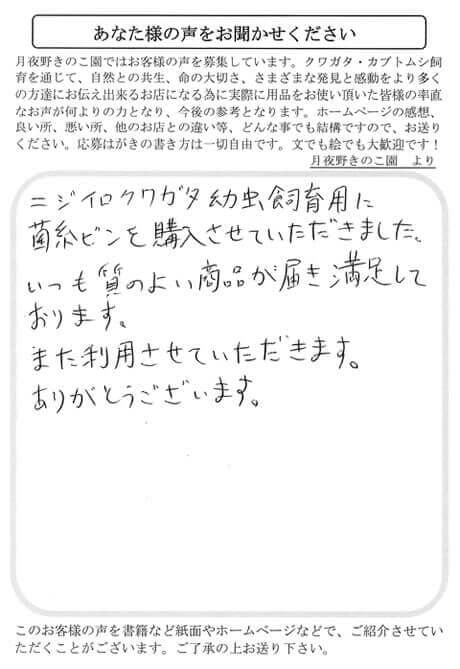 あなた様の声をお聞かせください
月夜野きのこ園ではお客様の声を募集しています。クワガタ・カブトムシ飼
育を通じて、自然との共生、命の大切さ、さまざまな発見と感動をより多く
の方達にお伝え出来るお店になる為に実際に用品をお使い頂いた皆様の率直
なお声が何よりの力となり、今後の参考となります。ホームページの感想、
良い所、悪い所、他のお店との違い等、どんな事でも結構ですので、お送り
ください。応募はがきの書き方は一切自由です。文でも絵でも大歓迎です！
月夜野きのこ園　より
ニジイロクワガタ幼虫飼育用に
菌糸ビンを購入させていただきました。
いつも質のよい商品が届き満足して
おります。
また利用させていただきます。
ありがとうございます。
このお客様の声を書籍など紙面やホームページなどで、ご紹介させてい
ただくことがございます。ご了承の上お送り下さい。